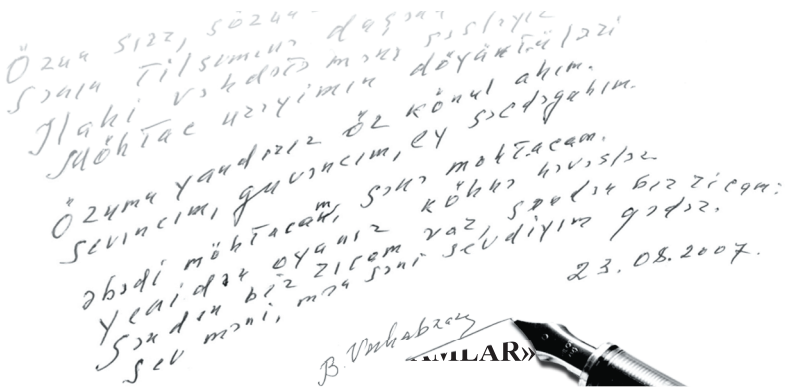 Özün sirr, sözün
Sənin tilsiminə daşına
İlahi vəhdətə məni səsləyir
Möhtac ürəyimin döyüntüləri
Özümü yandırır öz könül ahım.
Sevincim, güvəncim, ey səcdəgahım.
Əbədi möhtacam, sənə möhtacam.
Yenidən oyanır köhnə həvəslər
Səndən bir ricam var, səndən bir ricam:
Sev məni, mən səni sevdiyim qədər.
23.08.2007.
B. Vahabzadə
AMLAR»